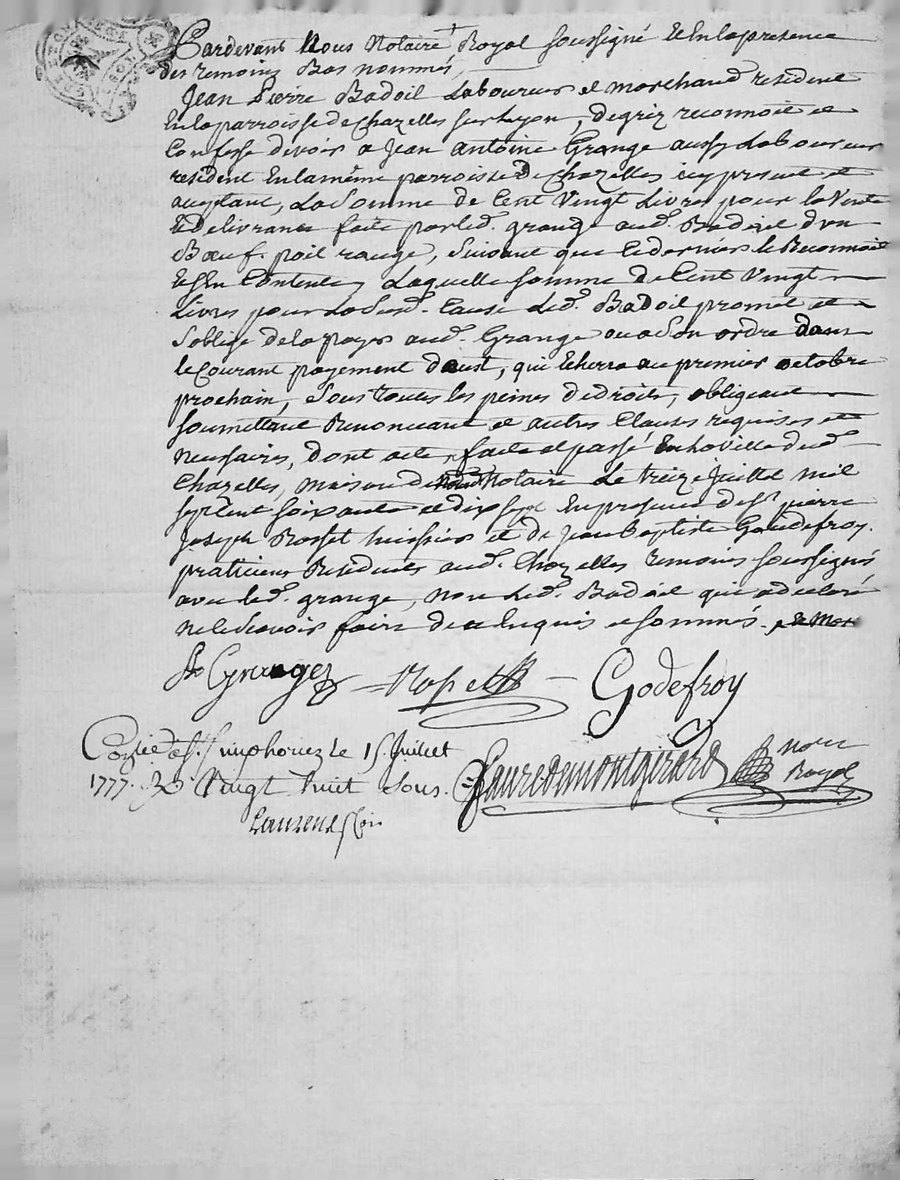 Pardevant Nous Notaire Royal soussigné et En la presence
des temoins Bas nommés,
Jean Pierre Badoil Laboureur et marchand resident
En la parroisse de Chazelles sur Lyon, de gré reconnoit et
Confesse devoir a Jean antoine Grange aussy Laboureur
resident En la même parroisse de Chazelles icy present et
acceptant, La Somme de Cent Vingt Livres pour la Vente
et delivrance faite par led. grange aud. Badoil d'un
Bœuf poil rouge, Suivant que ledernier le Reconnoit
et s'en Contente, Laquelle somme de Cent Vingt
Livres pour La Susd. Cause Led. Badoil promet et
s'oblige de la payer aud. Grange ou a Son ordre dans
le Courant payement d'aust, qui Echerra au premier octobre
prochain, Sous toutes les peines de droits, obligeant
soumettant Renonceant et autres Clauses requises et
necessaires, dont acte, fait et passé En la Ville dud.
Chazelles, maison de nousd. Notaire Le treize Juillet mil
sept Cent Soixante et dix sept En presence de Sr. pierre
Joseph Rosset huissier et de Jean Baptiste Goudefroy
praticien Residents aud. Chazelles temoins soussignés
avec led. grange, non Led. Badoil qui a declaré
ne le Scavoir faire de ce Enquis et sommé.
Grange
Rosset
Godefroy
Conlé a St. Simphorien Le 15 Juillet
1777. Vingt huit sous.
Faure de montgirard
nore
Royal
Laurens